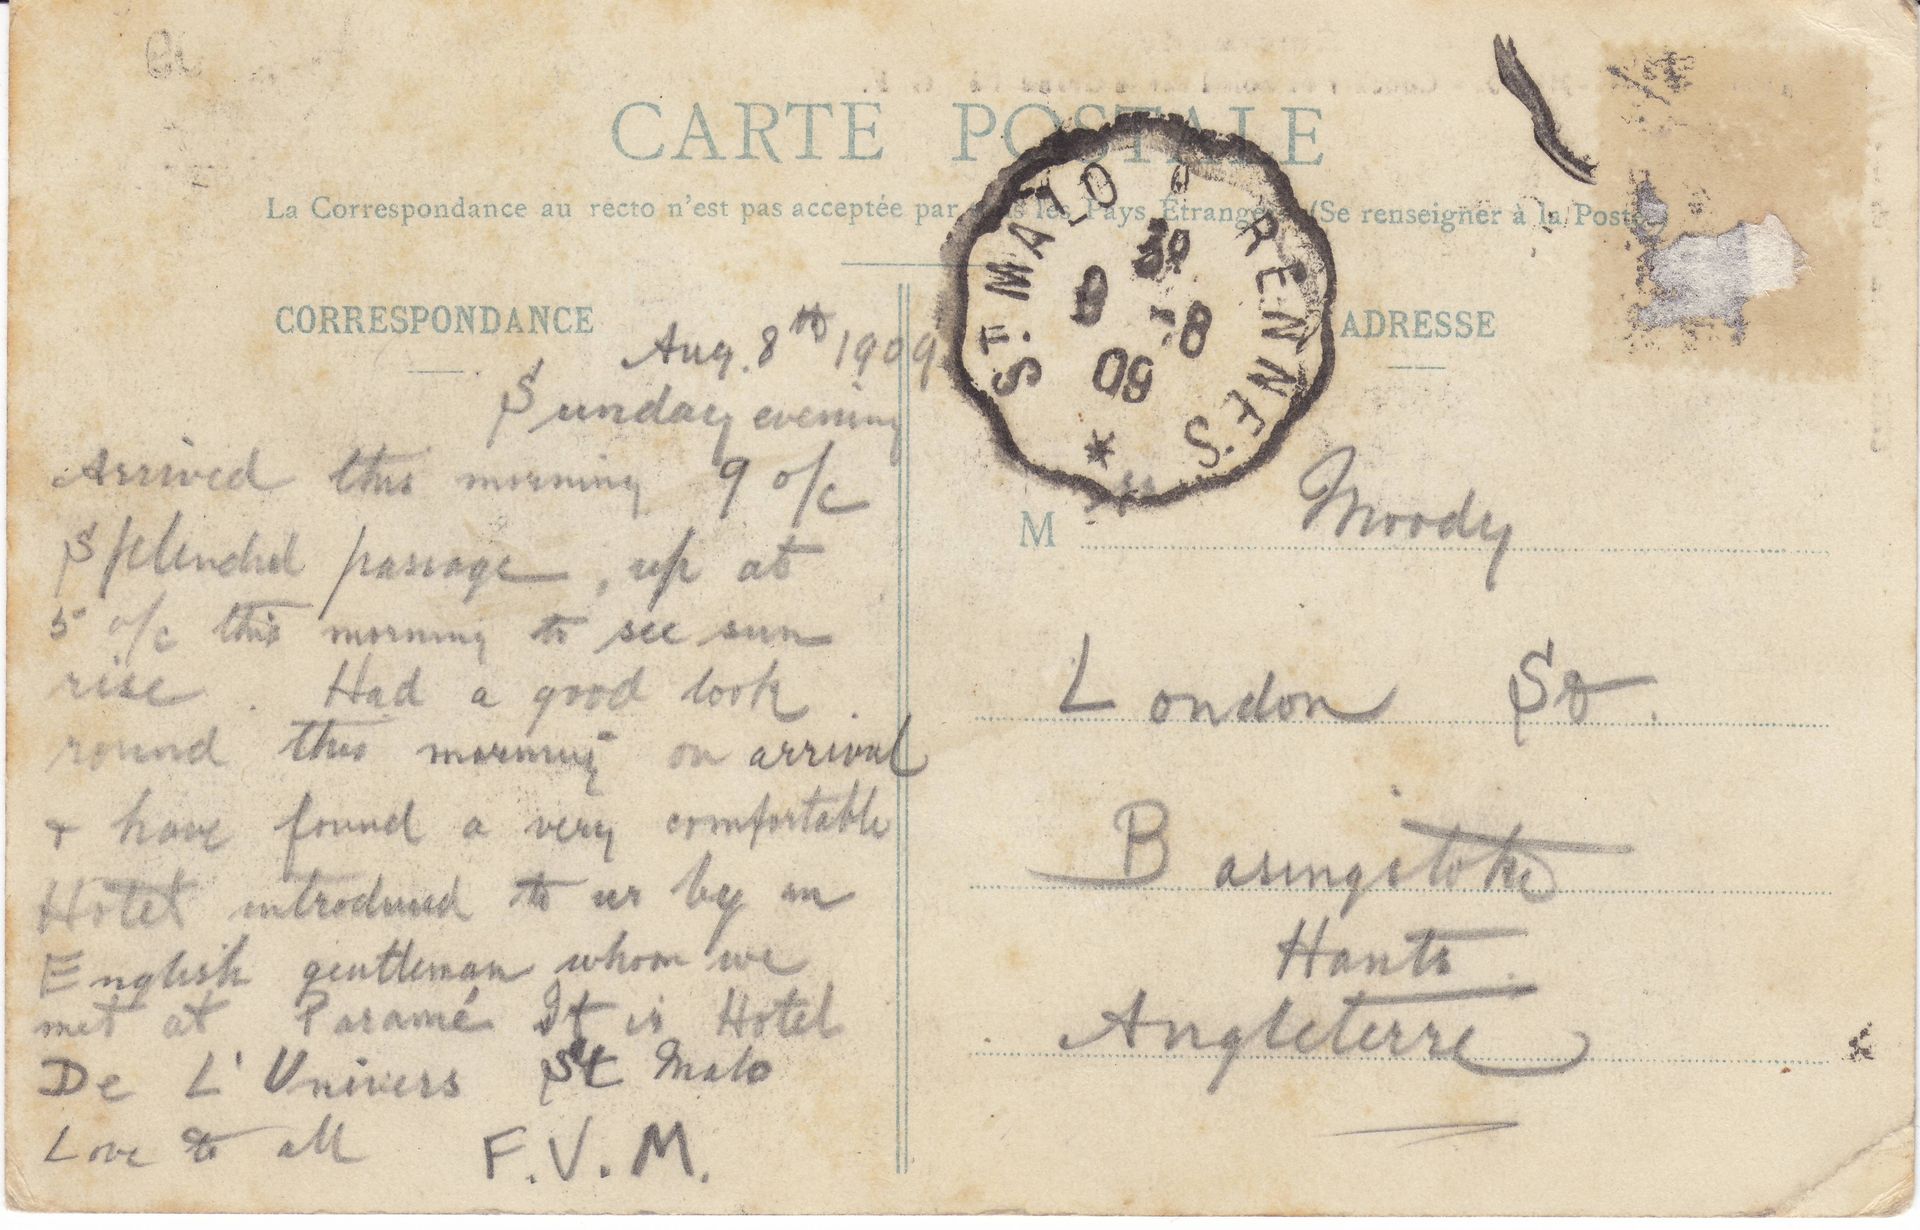 CARTE POSTALE
La Correspondance au recto n'est pas acceptée par tous les Pays Etrangers (Se renseigner à la Poste)
CORRESPONDANCE
Aug. 8th 1909
Sunday evening
Arrived this morning 9 o/c
Splendid passage, up at
5 o/c this morning to see sun
rise. Had a good look
round this morning on arrival
+ have found a very comfortable
Hotel introduced to us by an
English gentleman whom we
met at Paramé It is Hotel
De L'Univers St Malo
Love to all F.V.M.
ST MALO A RENNES
8
09
ADRESSE
M Moody
London St.
Basingstoke
Hants.
Angleterre